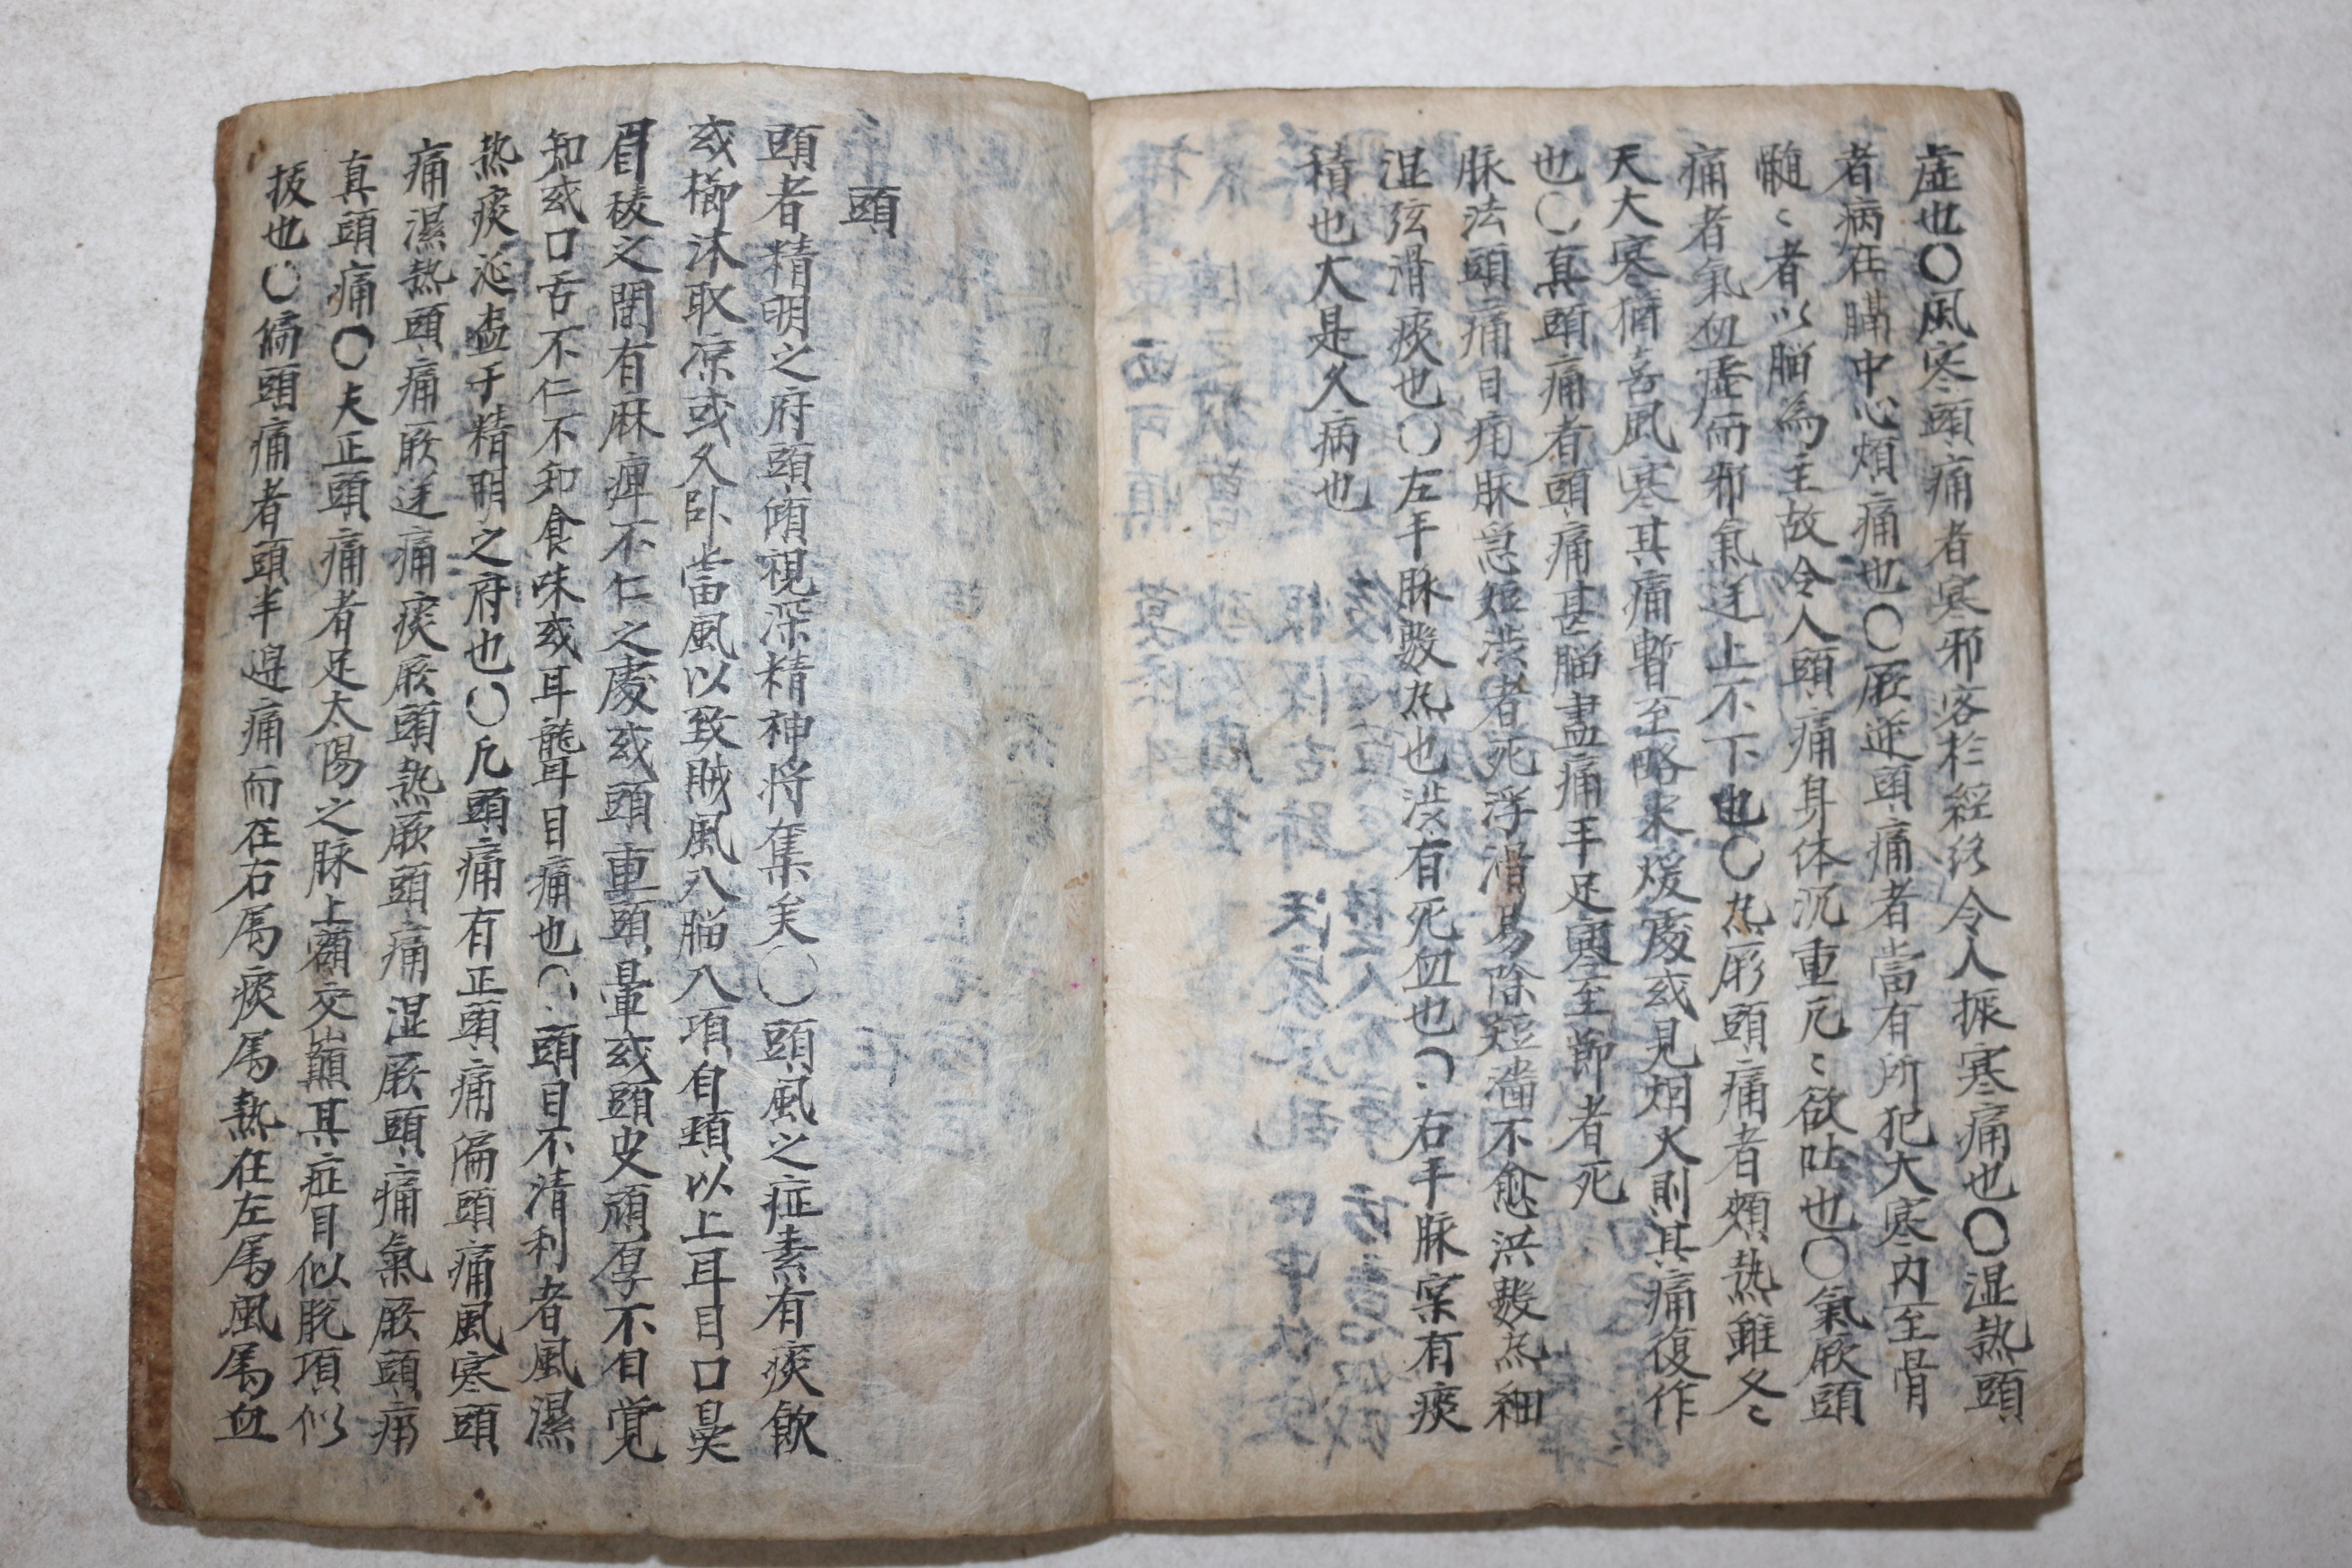 虛也〇風寒頭痛者寒邪客於經絡令人振寒痛也〇湿热頭
者病在膈中心煩痛也〇厥逆頭痛者當有所犯大寒內至骨
髓〻者以脳為主故令人頭痛身体沉重兀〻欲吐也〇氣厥頭
痛者氣血虛而邪氣逆上不下也〇热厥頭痛者頰热雖冬〻
天大寒猶喜風寒其痛暫至略來煖處或見烟火則其痛復作
也〇真頭痛者頭痛甚脳盡痛手足寒至節者死
脉法頭痛目痛脉急短澁者死浮滑易除短濇不愈洪數热細
湿弦滑痰也〇左手脉數热也澁有死血也〇右手脉案有痰
積也大是久病也
頭
頭者精明之府頭傾視深精神将奪矣〇頭風之症素有痰飲
或櫛沐取凉或久卧當風以致賊風入脳入項自頸以上耳目口鼻
眉稜之間有麻痺不仁之處或頭重頭暈或頭皮頑厚不自覚
知或口舌不仁不知食味或耳聾目痛也〇頭目不清利者風濕
热痰涎盍于精明之府也〇凡頭痛有正頭痛偏頭痛風寒頭
痛濕热頭痛厥逆痛痰厥頭热厥頭痛湿厥頭痛氣厥頭痛
真頭痛〇夫正頭痛者足太陽之脉上額交巔其症目似脫項似
拔也〇偏頭痛者頭半邉痛而在右属痰属热在左属風属血